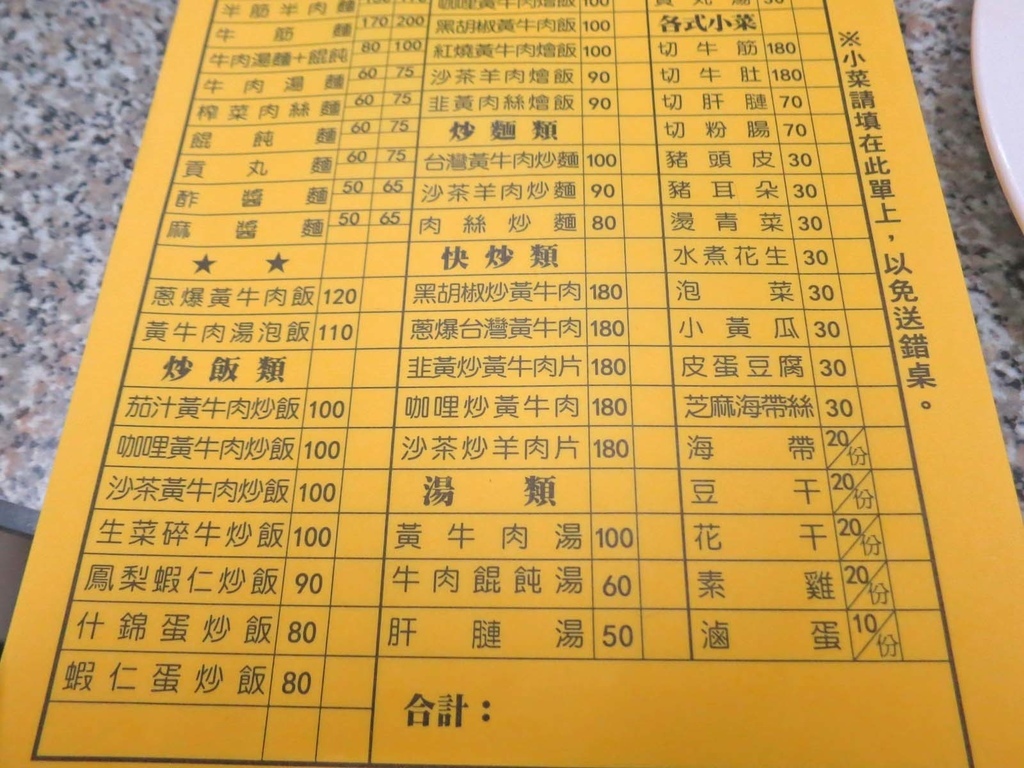 半筋半肉麵
牛筋麵 170 200
牛肉湯麵+餛飩 80 100
牛肉湯麵 60 75
榨菜肉絲麵 60 75
餛飩麵 60 75
貢丸麵 60 75
酢醬麵 50 65
麻醬麵 50 65
★ ★
蔥爆黃牛肉飯 120
黃牛肉湯泡飯 110
炒飯類
茄汁黃牛肉炒飯 100
咖哩黃牛肉炒飯 100
沙茶黃牛肉炒飯 100
生菜碎牛炒飯 100
鳳梨蝦仁炒飯 90
什錦蛋炒飯 80
蝦仁蛋炒飯 80
咖哩黃牛肉燴飯 100
黑胡椒黃牛肉飯 100
紅燒黃牛肉燴飯 100
沙茶羊肉燴飯 90
韭黃肉絲燴飯 90
炒麵類
台灣黃牛肉炒麵 100
沙茶羊肉炒麵 90
肉絲炒麵 80
快炒類
黑胡椒炒黃牛肉 180
蔥爆台灣黃牛肉 180
韭黃炒黃牛肉片 180
咖哩炒黃牛肉 180
沙茶炒羊肉片 180
湯類
黃牛肉湯 100
牛肉餛飩湯 60
肝膁湯 50
合計：
貢丸湯 30
各式小菜
切牛筋 180
切牛肚 180
切肝膁 70
切粉腸 70
豬頭皮 30
豬耳朵 30
燙青菜 30
水煮花生 30
泡菜 30
小黃瓜 30
皮蛋豆腐 30
芝麻海帶絲 30
海帶 20/份
豆干 20/份
花干 20/份
素雞 20/份
滷蛋 10/份
※小菜請填在此單上，以免送錯桌。